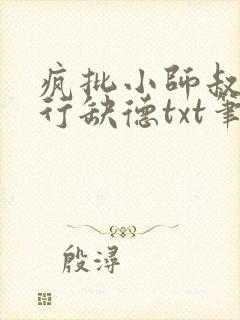 疯批小师叔
行缺德txt笔
殷浔